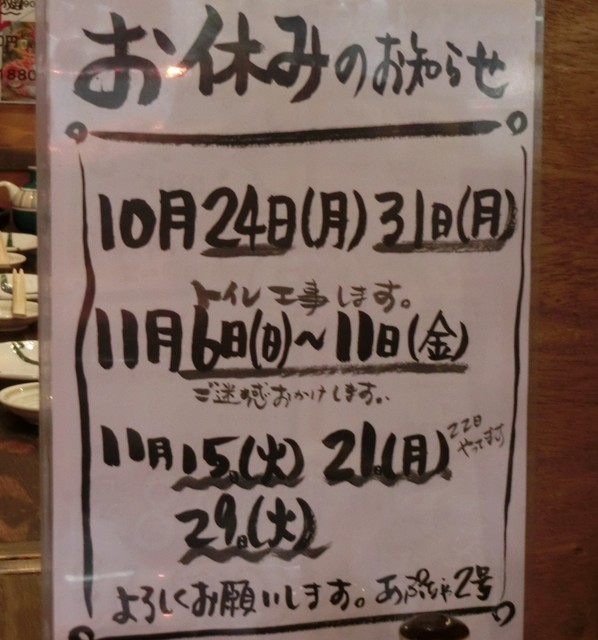 お休みのお知らせ
10月24日(月) 31日(月)
トイレ工事します。
11月6日(日)~11日(金)
ご迷惑おかけします。
11月15日(火) 21日(月)
22日
やってます
29日(火)
よろしくお願いします。あぷちゃ2号
1880